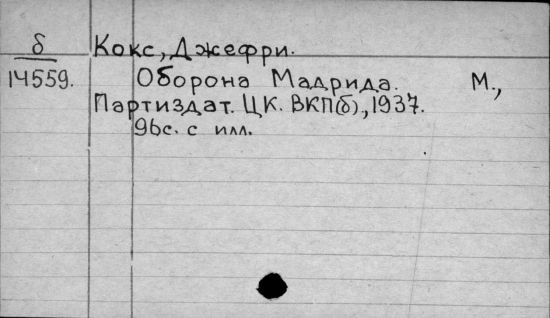 б Кокс, Джефри.
14559. Оборона Мадрида. М.,
Партиздат. ЦК. ВКП(б), 1937.
96с. с илл.